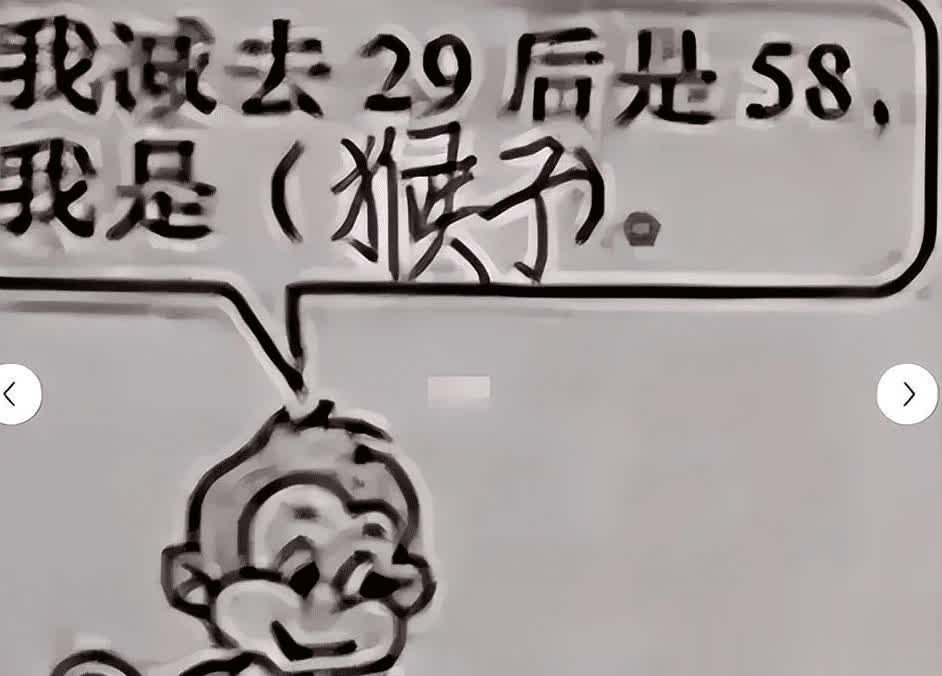 我减去 29 后是 58，
我是（猴子）。